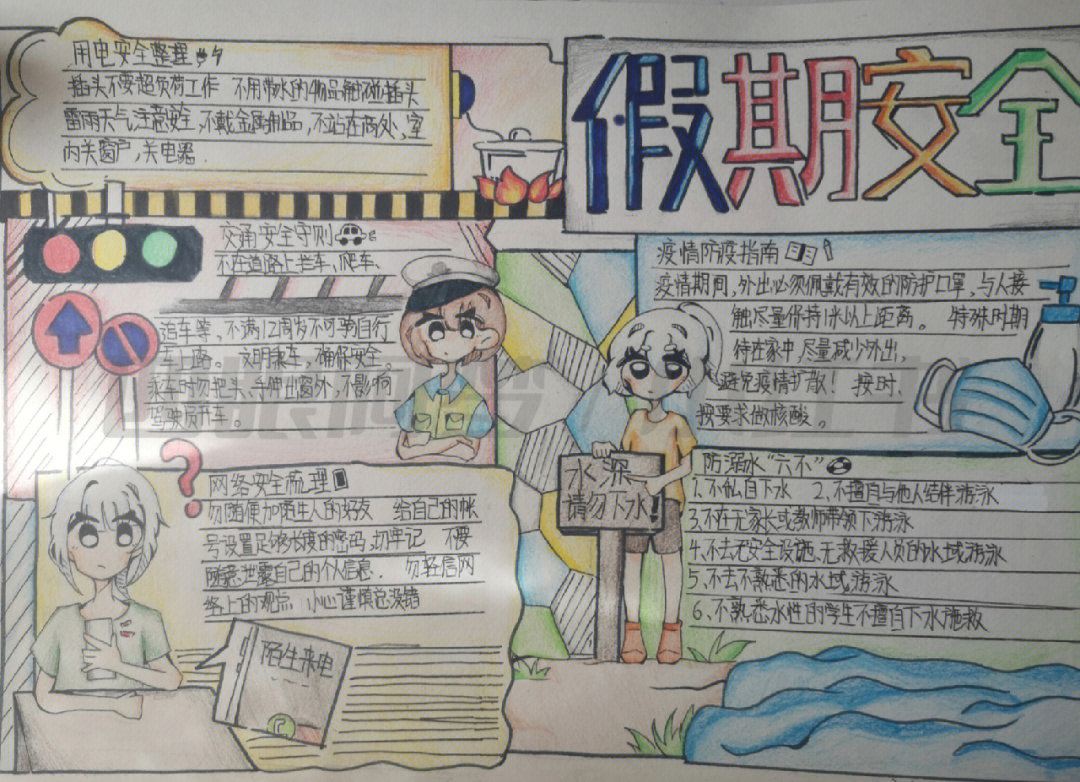 假期安全
用电安全整理
插头不要超负荷工作 不用带水的物品触碰插头
雷雨天气,注意安全,不戴金属制品,不站在高处,室
内关窗户,关电器.
交通安全守则
不在道路上拦车、爬车、
追车等,不满12周岁不可骑自行
车上路。文明乘车,确保安全。
乘车时勿把头、手伸出窗外,不影响
驾驶员开车。
疫情防疫指南
疫情期间,外出必须佩戴有效的防护口罩,与人接
触尽量保持1米以上距离。 特殊时期
待在家中,尽量减少外出,
避免疫情扩散! 按时、
按要求做核酸。
网络安全梳理
勿随便加陌生人的好友 给自己的帐
号设置足够长度的密码,切牢记 不要
随意泄露自己的个人信息. 勿轻信网
络上的观点 小心谨慎总没错
陌生来电
水深
请勿下水!
防溺水“六不”
1.不私自下水 2、不擅自与他人结伴游泳
3.不在无家长或教师带领下游泳
4、不去无安全设施、无救援人员的水域游泳
5、不去不熟悉的水域游泳
6、不熟悉水性的学生不擅自下水施救